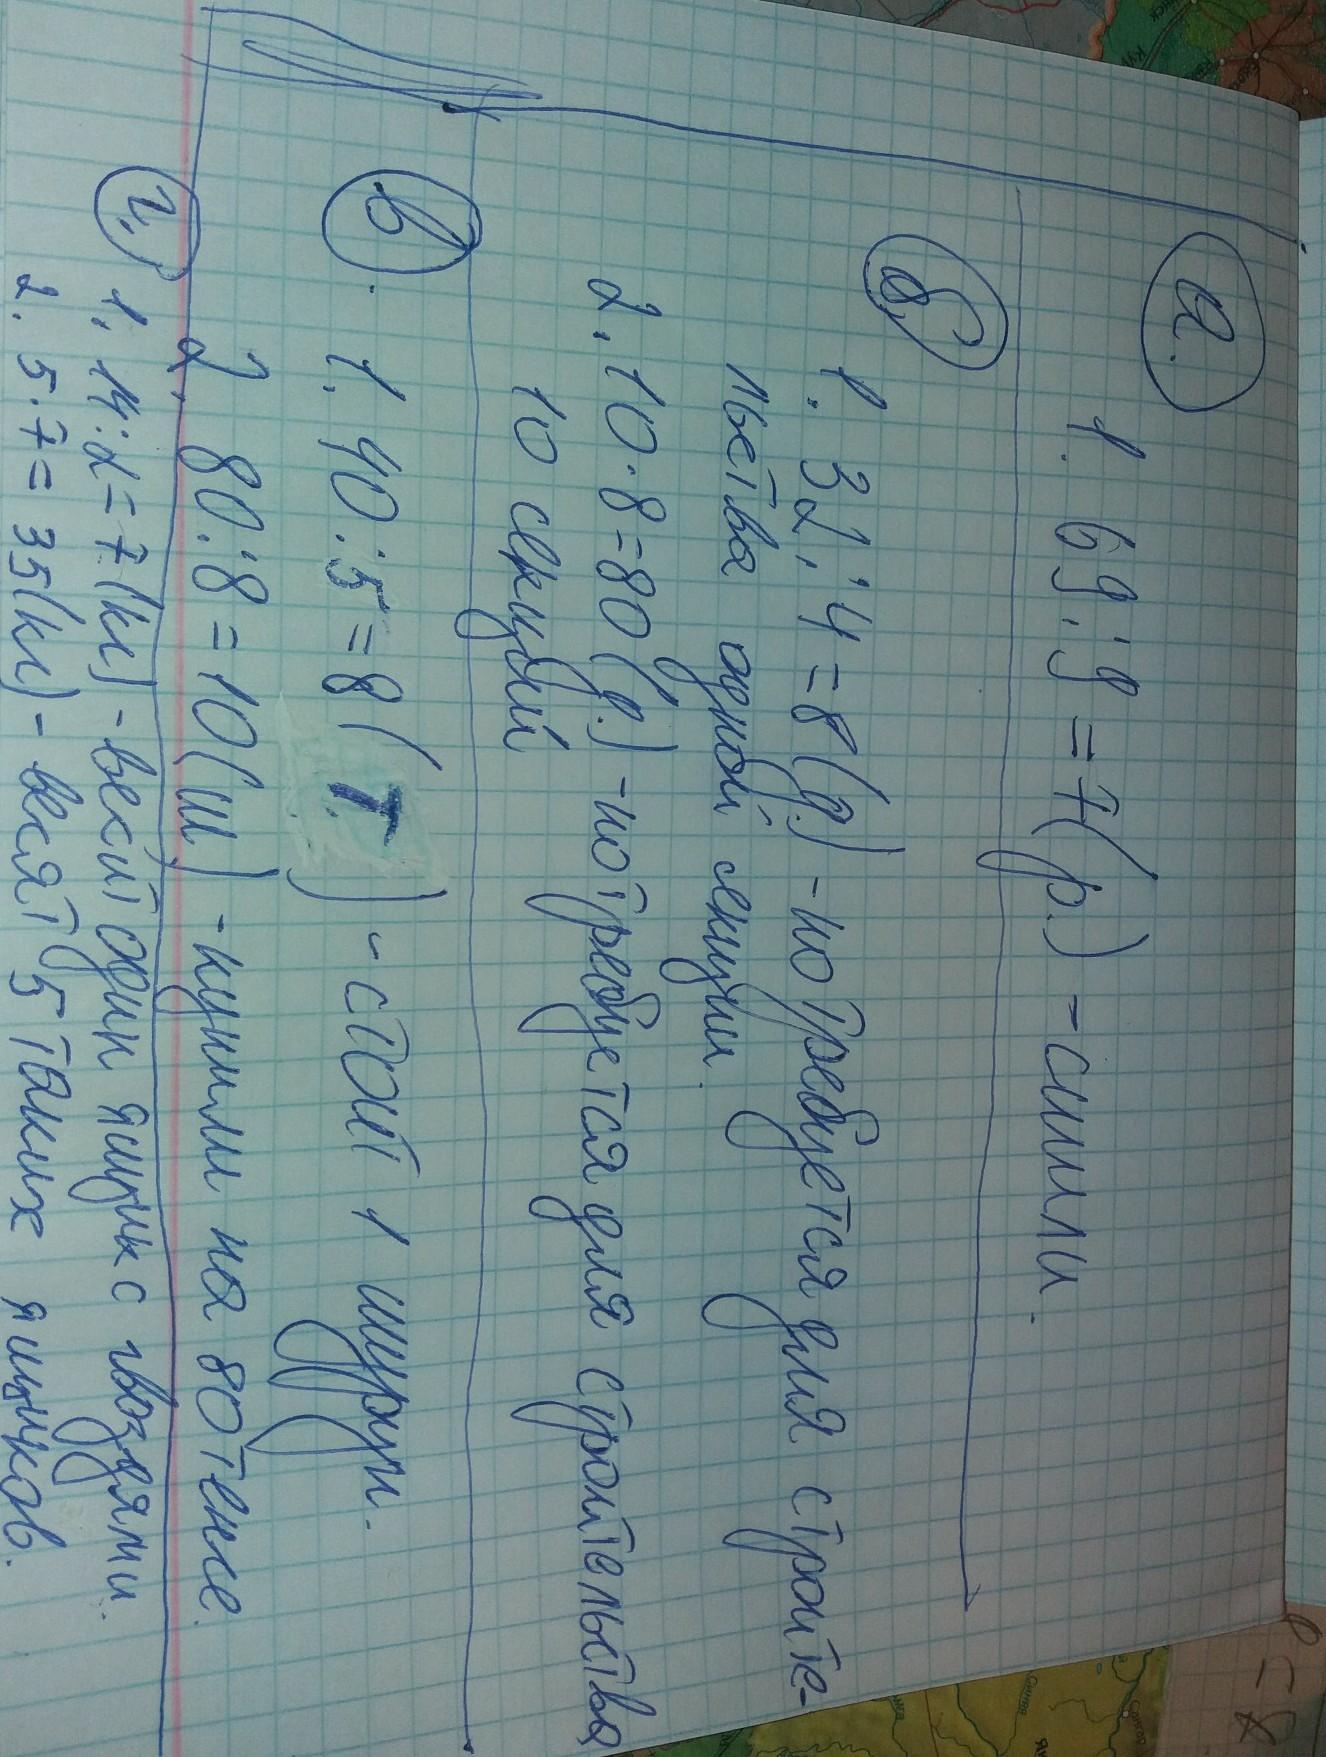 а.
1. 69 : 9 = 7 (р.) - сшили.
б.
1. 32 : 4 = 8 (д.) - потребуется для строите-
льства одной секции.
2. 10 · 8 = 80 (д.) - потребуется для строительства
10 секций
в.
1. 40 : 5 = 8 (т.) - стоит 1 шуруп.
2. 80 : 8 = 10 (ш) - купили на 80 тенге.
г.
1. 14 : 2 = 7 (кг) - весит один ящик с гвоздями.
2. 5 · 7 = 35 (кг) - весят 5 таких ящиков.